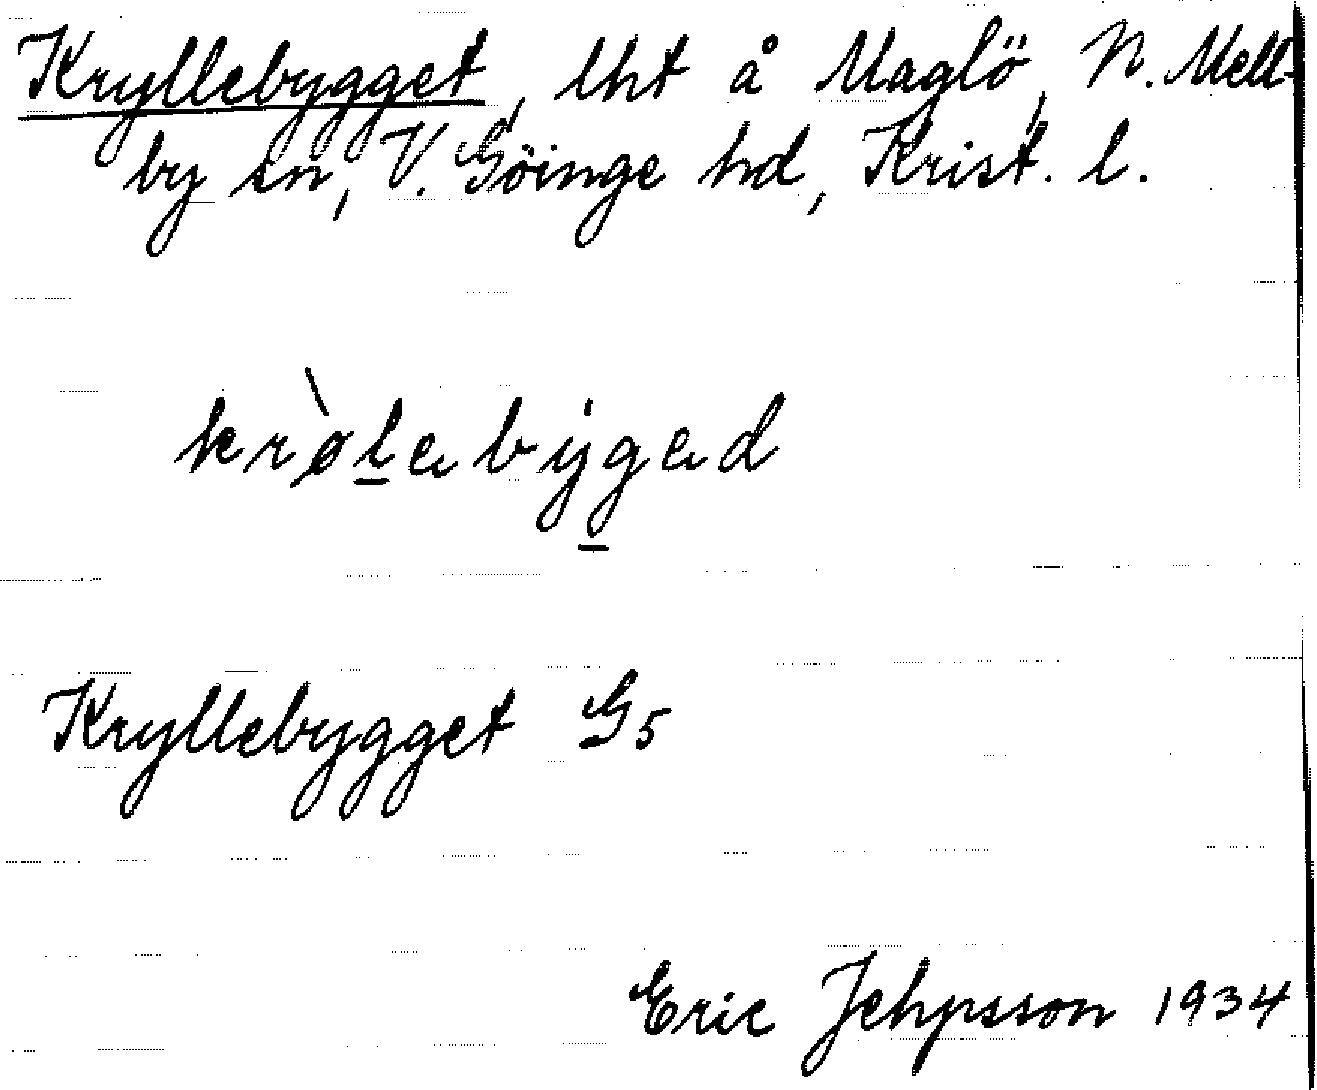 Kryllebygget, lht å Maglö, N. Mell-
by sn, V. Göinge hd, Krist. l.
krølabygad
Kryllebygget G5
Eric Jehpsson 1934